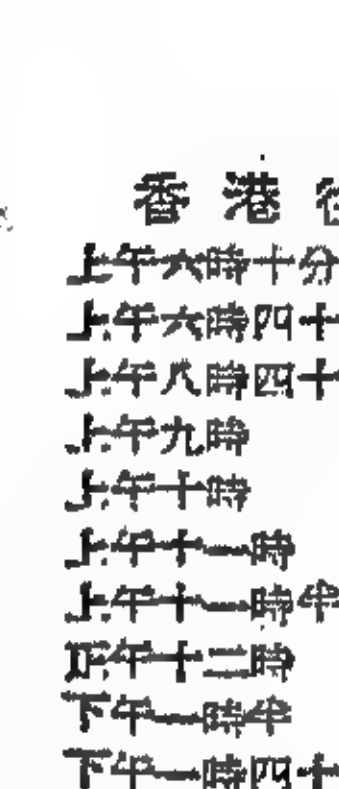 香港往
上午六時十分
上午六時四十
上午八時四十
上午九時
上午十時
上午十一時
上午十一時半
正午十二時
下午一時半
下午一時四十